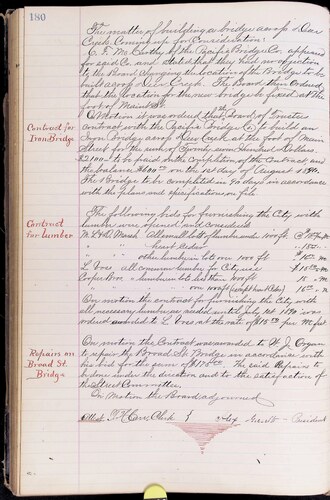 180
The matter of building a bridge across Deer
Creek Coming up for Consideration:
C. F. McCarthy of the Pacific Bridge Co. appeared
for said Co. and stated that they had no objection
to the Board changing the location of the Bridge to be
built across Deer Creek. The Board then ordered
that the location for the new bridge be fixed at the
foot of Main St.
Contract for
Iron Bridge
On Motion it was ordered that Board of Trustees
contract with the Pacific Bridge Co. to build an
Iron Bridge across Deer Creek at the foot of Main
Street for the sum of Twenty seven Hundred Dollars.
$2100.- to be paid on the Completion of the Contract, and
the balance $600.00 on the 1st day of August 1890.
The Bridge to be completed in 90 days in accordance
with the plans and specifications on file
Contract
for Lumber
The following bids for furnishing the City with
lumber were opened and considered
M. L. & D. Marsh All
" " heart Cedar
" " other lumber in lots over 100 ft.
L. Voss all common lumber for City use
" " on 1000 ft
On motion the contract for furnishing the City with
all necessary lumber as needed until July 1st 1890 was
ordered awarded to L. Voss at the rate of per M feet
Repairs on
Broad St.
Bridge
On motion the Contract was awarded to W. J. Organ
to repair the Broad St. Bridge in accordance with
his bid for the same of The said Repairs to
be done under the direction and to the satisfaction of
the Street Committee.
On Motion the Board adjourned
Attest Clerk President